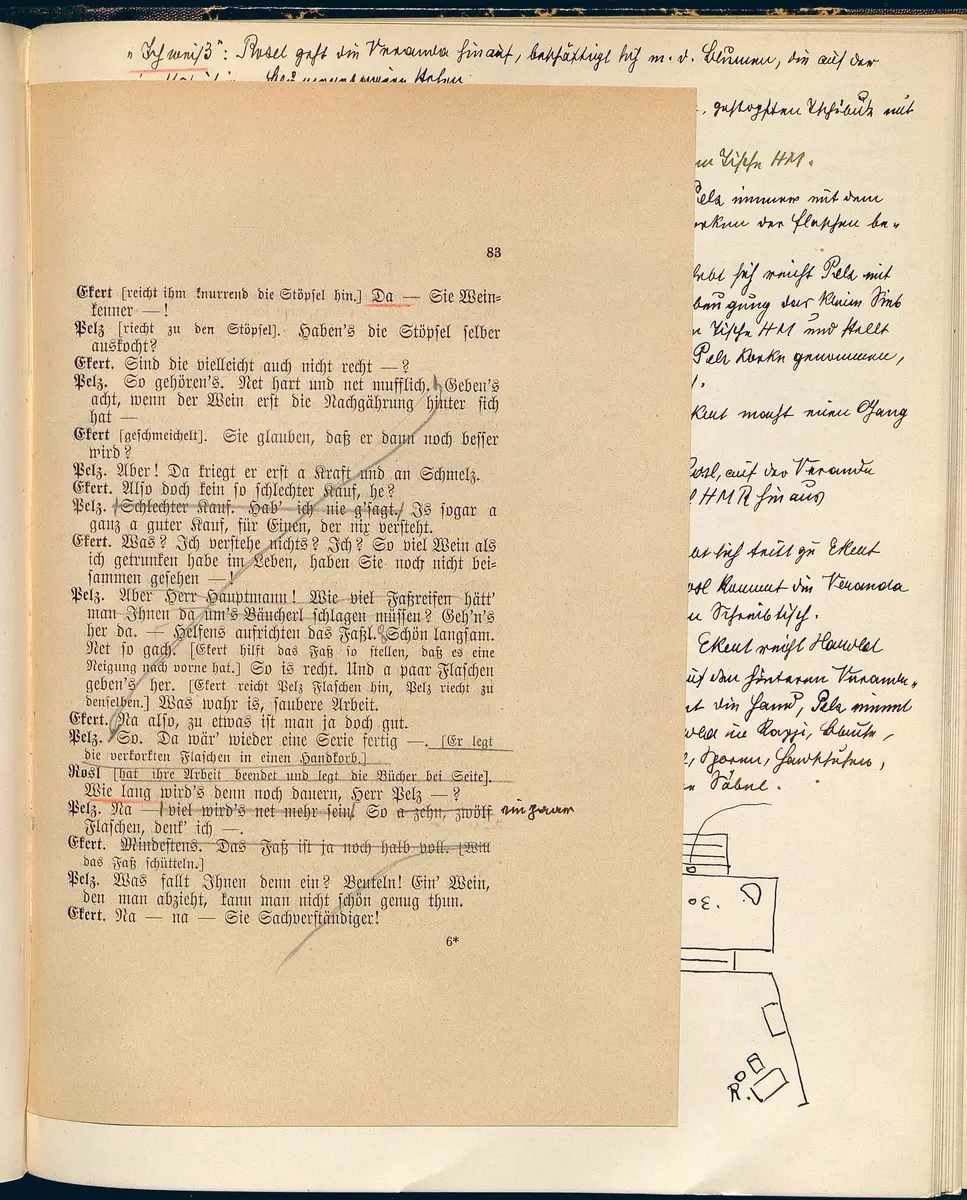 "Ich weiß": Rosel geht die Veranda hinauf, beschäftigt sich m. d. Blumen, die auf der
83
Ekert [reicht ihm knurrend die Stöpsel hin.] Da — Sie Wein-
kenner — !
Pelz [riecht zu den Stöpsel]. Haben's die Stöpsel selber
auskocht?
Ekert. Sind die vielleicht auch nicht recht — ?
Pelz. So gehören's. Net hart und net mufflich. Geben's
acht, wenn der Wein erst die Nachgährung hinter sich
hat —
Ekert [geschmeichelt]. Sie glauben, daß er dann noch besser
wird?
Pelz. Aber! Da kriegt er erst a Kraft und an Schmelz.
Ekert. Also doch kein so schlechter Kauf, he?
Pelz. Schlechter Kauf. Hab' ich nie g'sagt. Is sogar a
ganz a guter Kauf, für Einen, der nix versteht.
Ekert. Was? Ich verstehe nichts? Ich? So viel Wein als
ich getrunken habe im Leben, haben Sie noch nicht bei-
sammen gesehen — !
Pelz. Aber Herr Hauptmann! Wie viel Faßreifen hätt'
man Ihnen da um's Bäucherl schlagen müssen? Geh'n's
her da. — Helfens aufrichten das Faßl. Schön langsam.
Net so gach. [Ekert hilft das Faß so stellen, daß es eine
Neigung nach vorne hat.] So is recht. Und a paar Flaschen
geben's her. [Ekert reicht Pelz Flaschen hin, Pelz riecht zu
denselben.] Was wahr is, saubere Arbeit.
Ekert. Na also, zu etwas ist man ja doch gut.
Pelz. So. Da wär' wieder eine Serie fertig —. [Er legt
die verkorkten Flaschen in einen Handkorb.]
Rosl [hat ihre Arbeit beendet und legt die Bücher bei Seite].
Wie lang wird's denn noch dauern, Herr Pelz — ?
Pelz. Na — viel wird's net mehr sein. So a zehn, zwölf ein paar
Flaschen, denk' ich —.
Ekert. Mindestens. Das Faß ist ja noch halb voll. [Will
das Faß schütteln.]
Pelz. Was fallt Ihnen denn ein? Beuteln! Ein' Wein,
den man abzieht, kann man nicht schön genug thun.
Ekert. Na — na — Sie Sachverständiger!
6*
gestopften Tschibuk mit
Tische HM.
Pelz immer mit dem
der Flaschen be-
sich reicht Pelz mit
das kleine Sieb
Tische HM und stellt
Pelz Korke genommen,
macht einen Gang
Rosl, auf der Veranda
HMR hinaus
sich tritt zu Ekert
Rosl kommt die Veranda
Schreibtisch.
Ekert reicht Harold
den hinteren Veranda-
die Hand, Pelz nimmt
Sporen, Handschuhe,
Säbel.
30.
R.